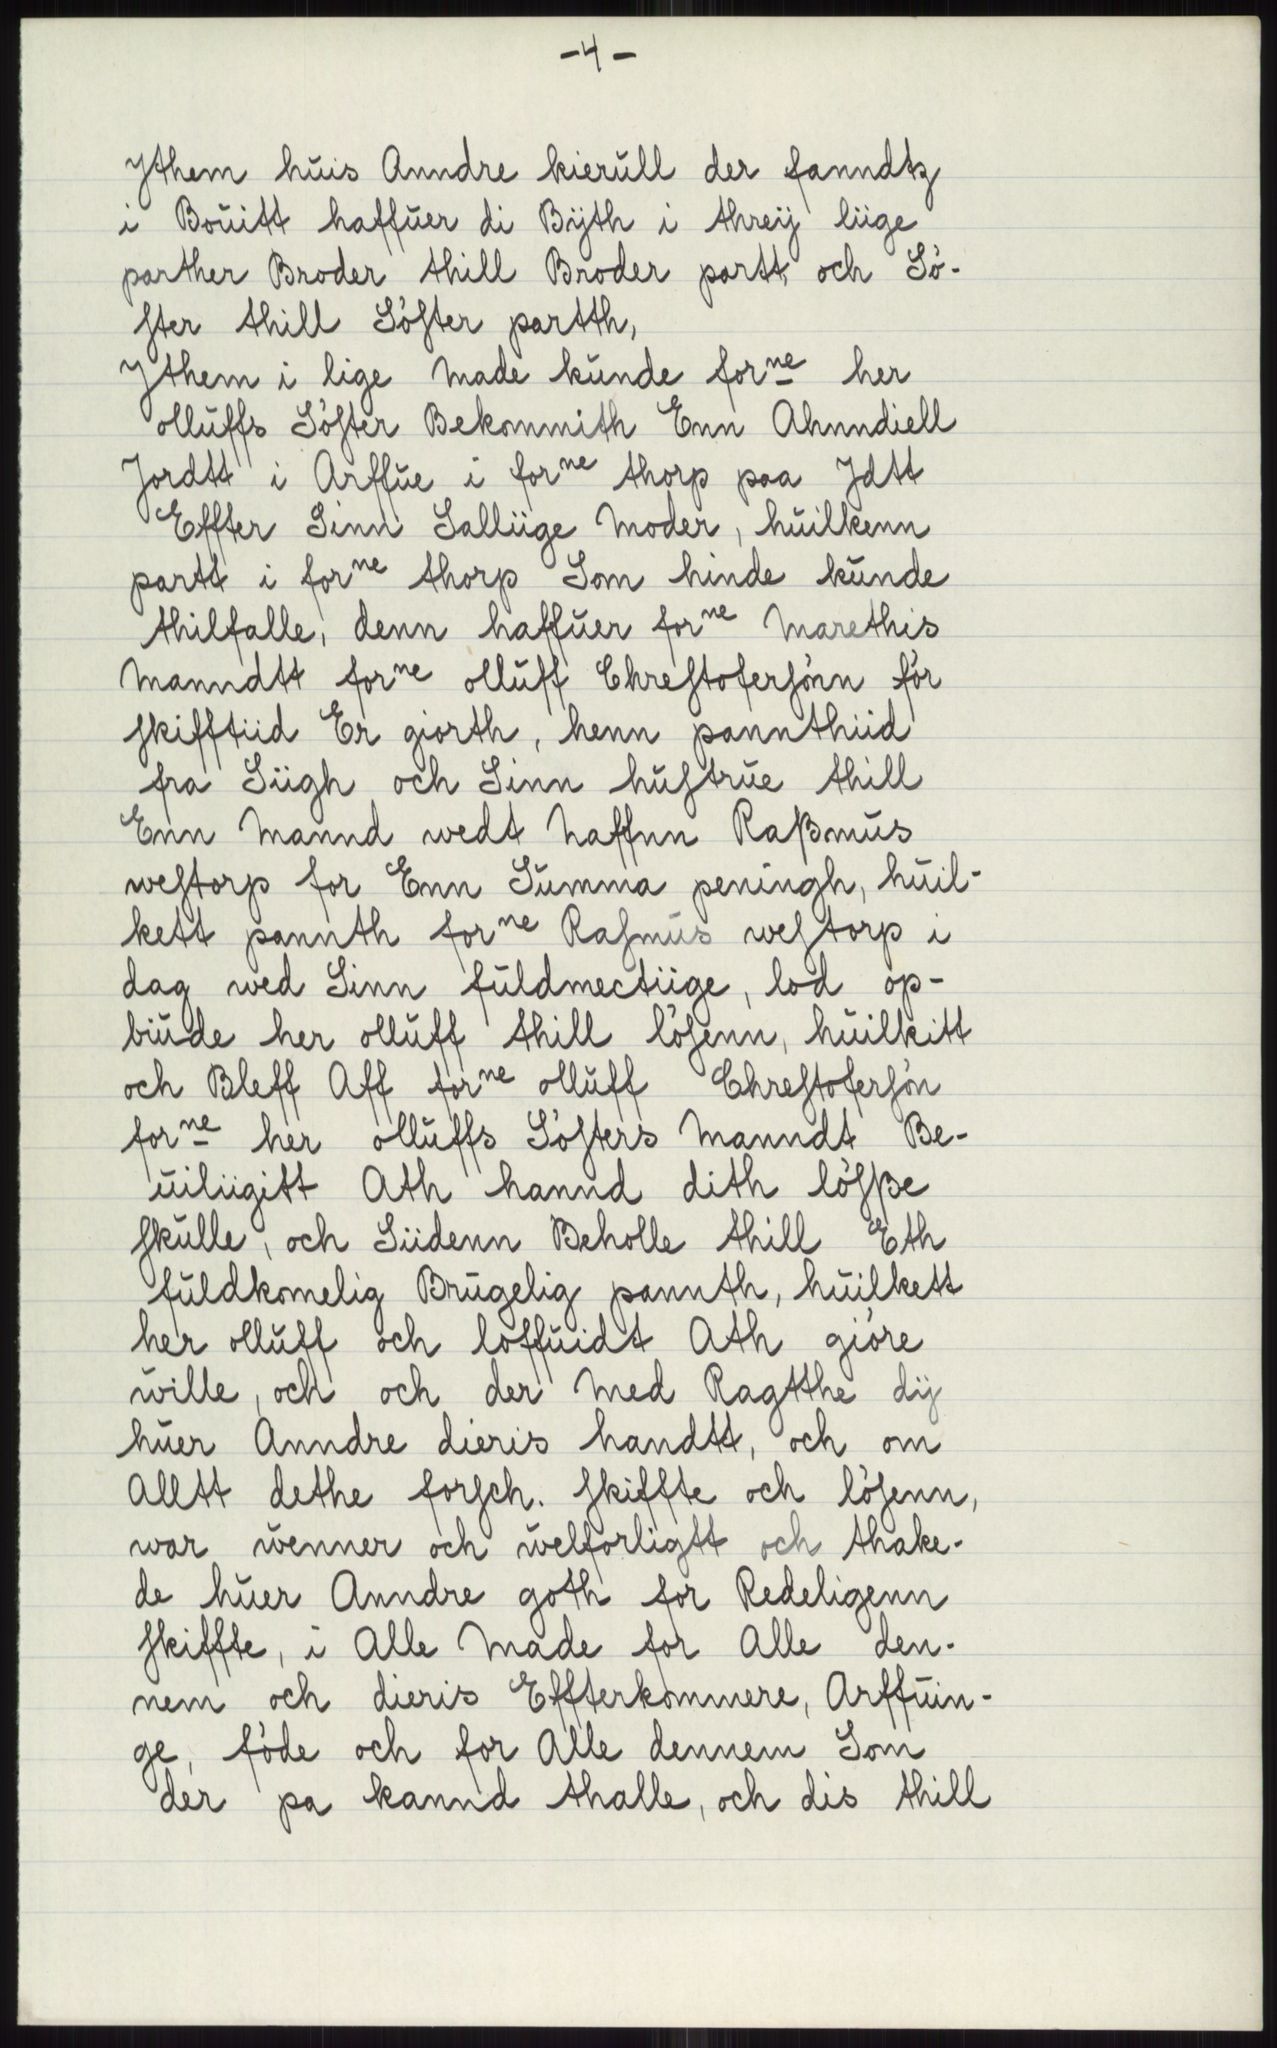 -4-
Jthem huis Anndre kierull der fanndtz
i Boŭitt haffŭer di Bÿth i threÿ liige
parther Broder thill Broder partt och Sö-
ster thill Söster partth,
Jthem i lige Made kunde forne her
ollŭffs Söster Bekommith Enn Ahnndiell
Jordtt i Arffŭe i forne thorp paa Jdtt
Effter Sinn Salliige Moder, hŭilkenn
partt i forne thorp Som hinde kŭnde
thilfalle, denn haffŭer forne Marethis
Manndtt forne ollŭff Chrestofersönn för
skifftiid Er giorth, henn pannthiid
fra Siigh och Sinn hŭstrŭe thill
Enn Mannd wedt Naffnn Raßmŭs
westorp for Enn Sŭmma peningh, hŭil-
kett pannth forne Rasmŭs westorp i
dag wed Sinn fŭldmectiige, lod op-
biŭde her ollŭff thill lösenn, hŭilkitt
och Bleff Aff forne ollŭff Chrestofersön
forne her ollŭffs Sösters Manndt Be-
ŭiliigitt Ath hannd dith lösße
skŭlle, och Siidenn Beholle thill Eth
fŭldkomelig Brŭgelig pannth, hŭilkett
her ollŭff och loffŭidt Ath giöre
wille, och och der Med Ragtthe dÿ
hŭer Anndre dieris handtt, och om
Alltt dethe forsch. skiffte och lösenn,
war wenner och welforligtt och thake-
de hŭer Anndre goth for Redeligenn
skiffte, i Alle Made for Alle den-
nem och dieris Effterkommere, Arffŭin-
ge, föde och for Alle dennem Som
der pa kannd thalle, och dis thill